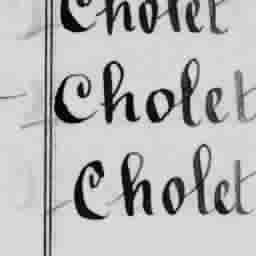 Cholet
Cholet
Cholet